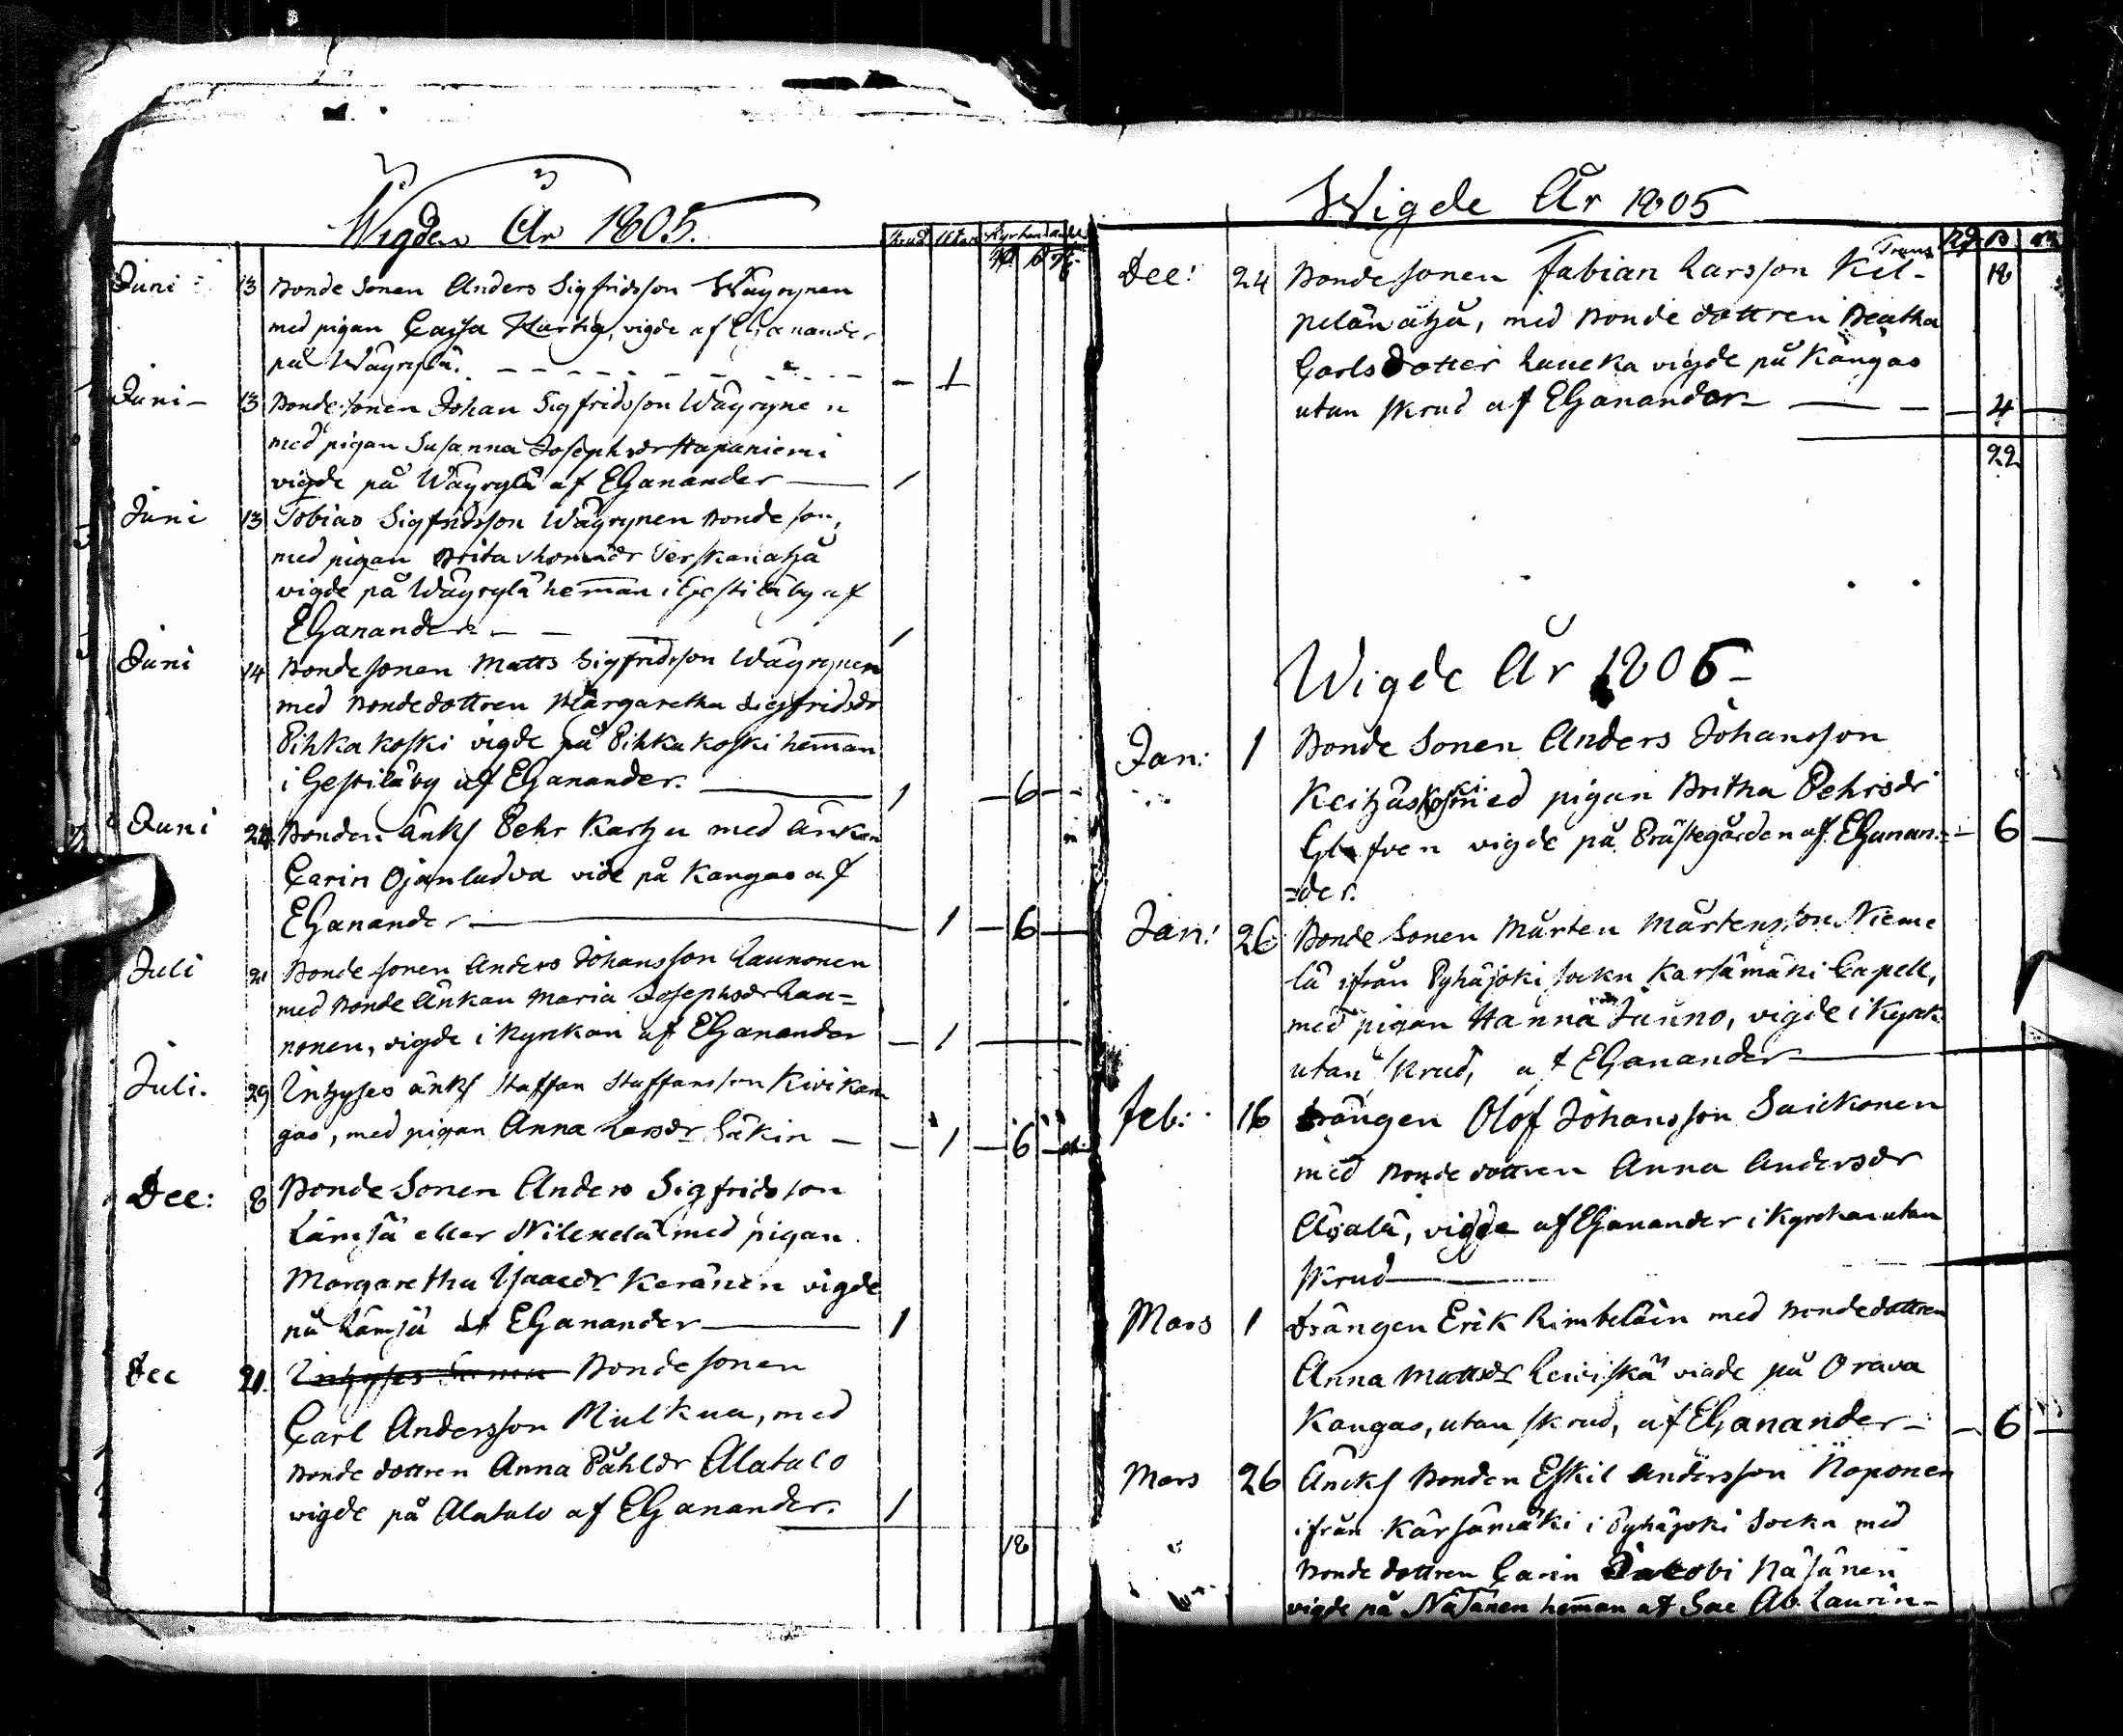 Wigden År 1805.
Skrud Utan Kyrkan
Juni 13 Bonde Sonen Anders Sigfridsson Wäyrynen
med pigan Cajsa Hartig, vigde af EGanander
på Wäyrylä. 1
Juni 13 Bonde sonen Johan Sigfridsson Wäyrynen
med pigan Susanna Josephsdr Hapaniemi
vigde på Wäyrylä af EGanander 1
Juni 13 Tobias Sigfridsson Wäyrynen Bonde son,
med pigan Brita Thomadr
vigde på Wäyrylä heman i Gestilä by af
EGanander 1
Juni 14 Bonde sonen Matts Sigfridsson Wäyrynen
med Bondedottren Margaretha Sigfridsdr
Pihkakoski vigde på Pihkakoski heman
i Gestilä by af EGanander. 1 6
Juni 24 Bonden änkl Pehr Kartzu med änkan
Carin Ojanladva vide på Kangas af
EGanander 1 6
Juli 21 Bonde sonen Anders Johansson Launonen
med Bonde änkan Maria Josephsdr Lau=
nonen, vigde i Kyrkan af EGanander 1
Juli. 29 Inhyses änkl Staffan Staffansson Kivikan
gas, med pigan Anna Larsdr Säkin 1 6
Dec: 8 Bonde Sonen Anders Sigfridsson
Lämsä eller Nikkelä med pigan
Margaretha Isaacdr Keränen vigde
på Lämsä af EGanander 1
Dec 21. Inhyses Bonde sonen
Carl Andersson Mulkua, med
Bonde dottren Anna Påhldr Alatalo
vigde på Alatalo af EGanander. 1
18
Wigde År 1805
Trans
Dec: 24 Bonde sonen Fabian Larsson Kil- 18
pelänaho, med Bonde dottren Beatha
Carlsdotter Laucka vigde på Kangas
utan skrud af EGanander 4
22
Wigde År 1806
Jan: 1 Bonde Sonen Anders Johansson
med pigan Britha Pehrsdr
vigde på Prästegården af EGanan= 6
=der.
Jan: 26 Bonde Sonen Mårten Mårtensson Nieme
lä ifrån Pyhäjoki sockn Karsämäki Capell,
med pigan Hanna Juuno, vigde i Kyrk.
utan skrud, af EGanander
Feb: 16 Drängen Olof Johansson Saickonen
med Bonde dottren Anna Andersdr
Asiala, vigde af EGanander i Kyrckan utan
skrud
Mars 1 Drängen Erik Rimbeläin med Bondedottren
Anna Mattsdr Leiviskä vigde på Orava
Kangas, utan skrud, af EGanander 6
Mars 26 Änckl Bonden Eskil Andersson Naponen
ifrån Kärsämäki i Pyhäjoki Sockn med
Bonde dottren Carin Jacobi Näsänen
vigde på Näsänen heman af Sac Ab. Laurin-